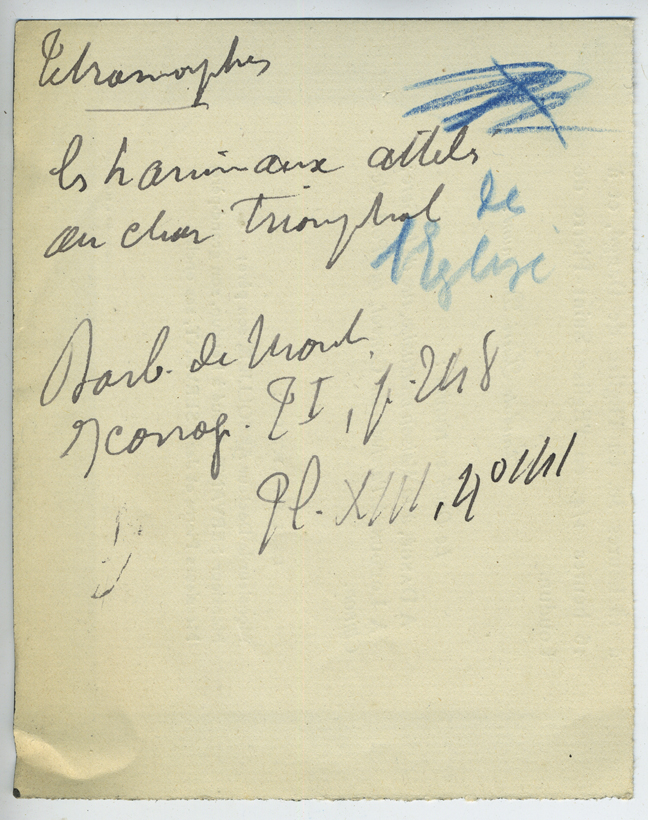 Tétramorphes
les 4 animaux attelés
au char Triomphal de
l'Eglise
Barb. de Mont.
Iconog. T I, p. 248
Pl. XIII, n°